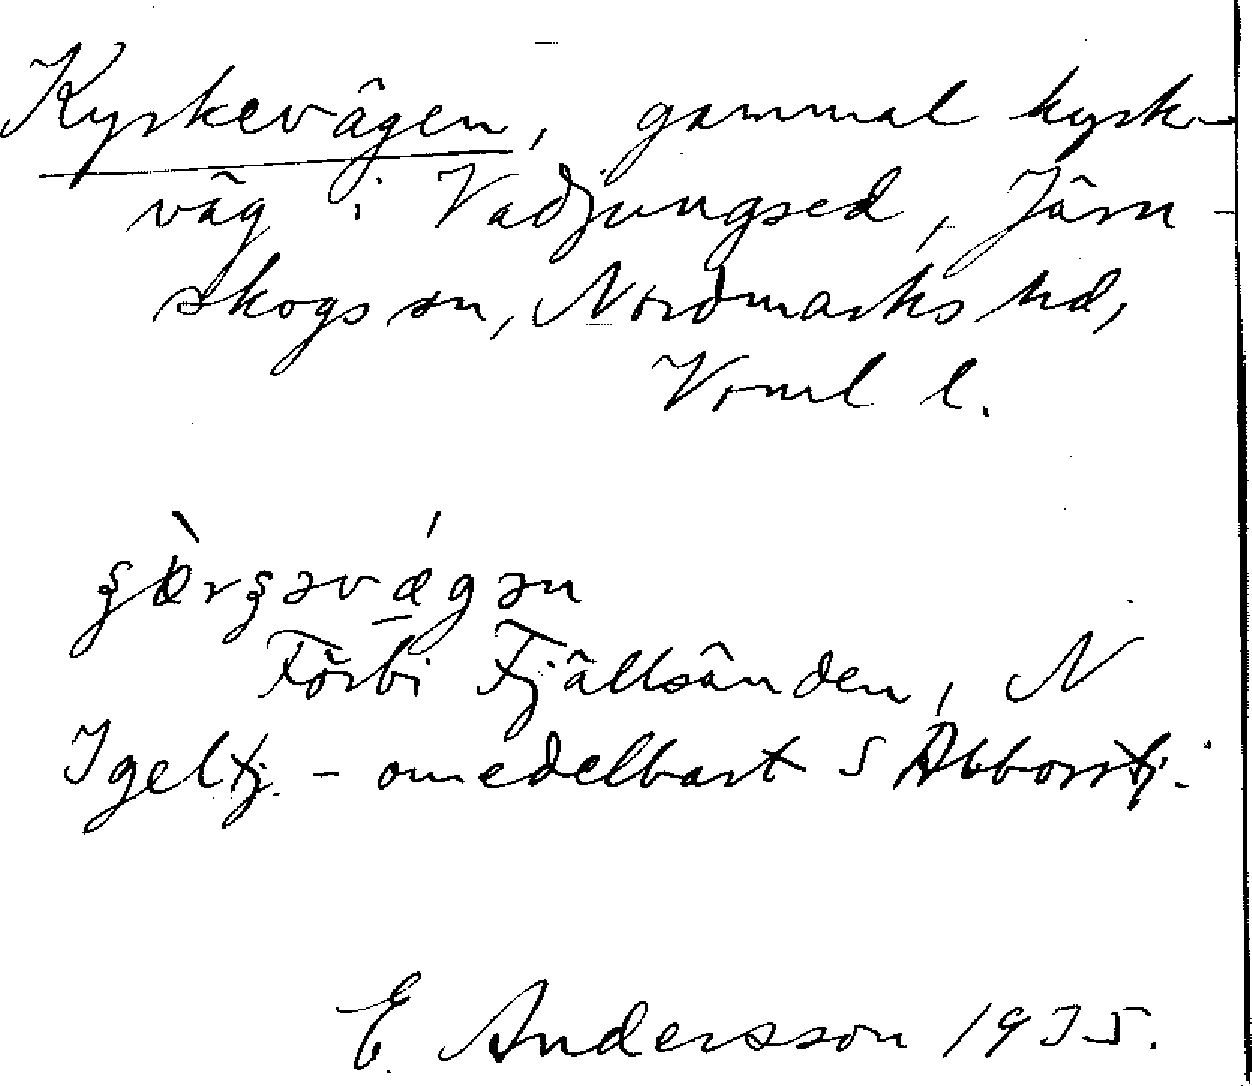 Kyrkevägen, gammal kyrk-
väg i Vadjungsed, Järn-
skogs sn, Nordmarks hd,
Vrml l.
Förbi Fjällsänden, N
Igeltj. - omedelbart S Abborrtj.
E. Andersson 1935.